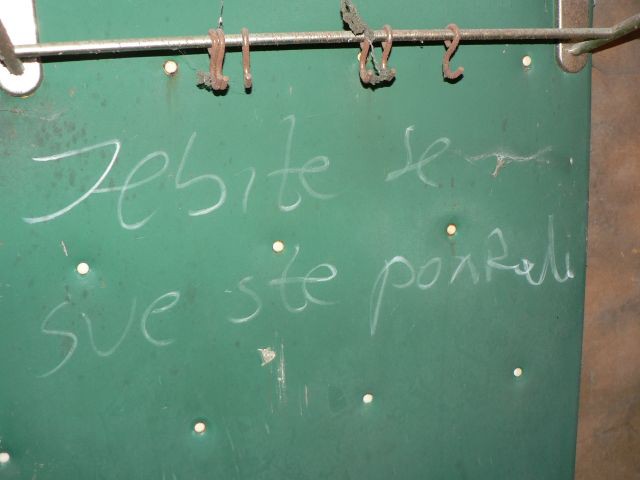 Jebite se
sve ste pokRali